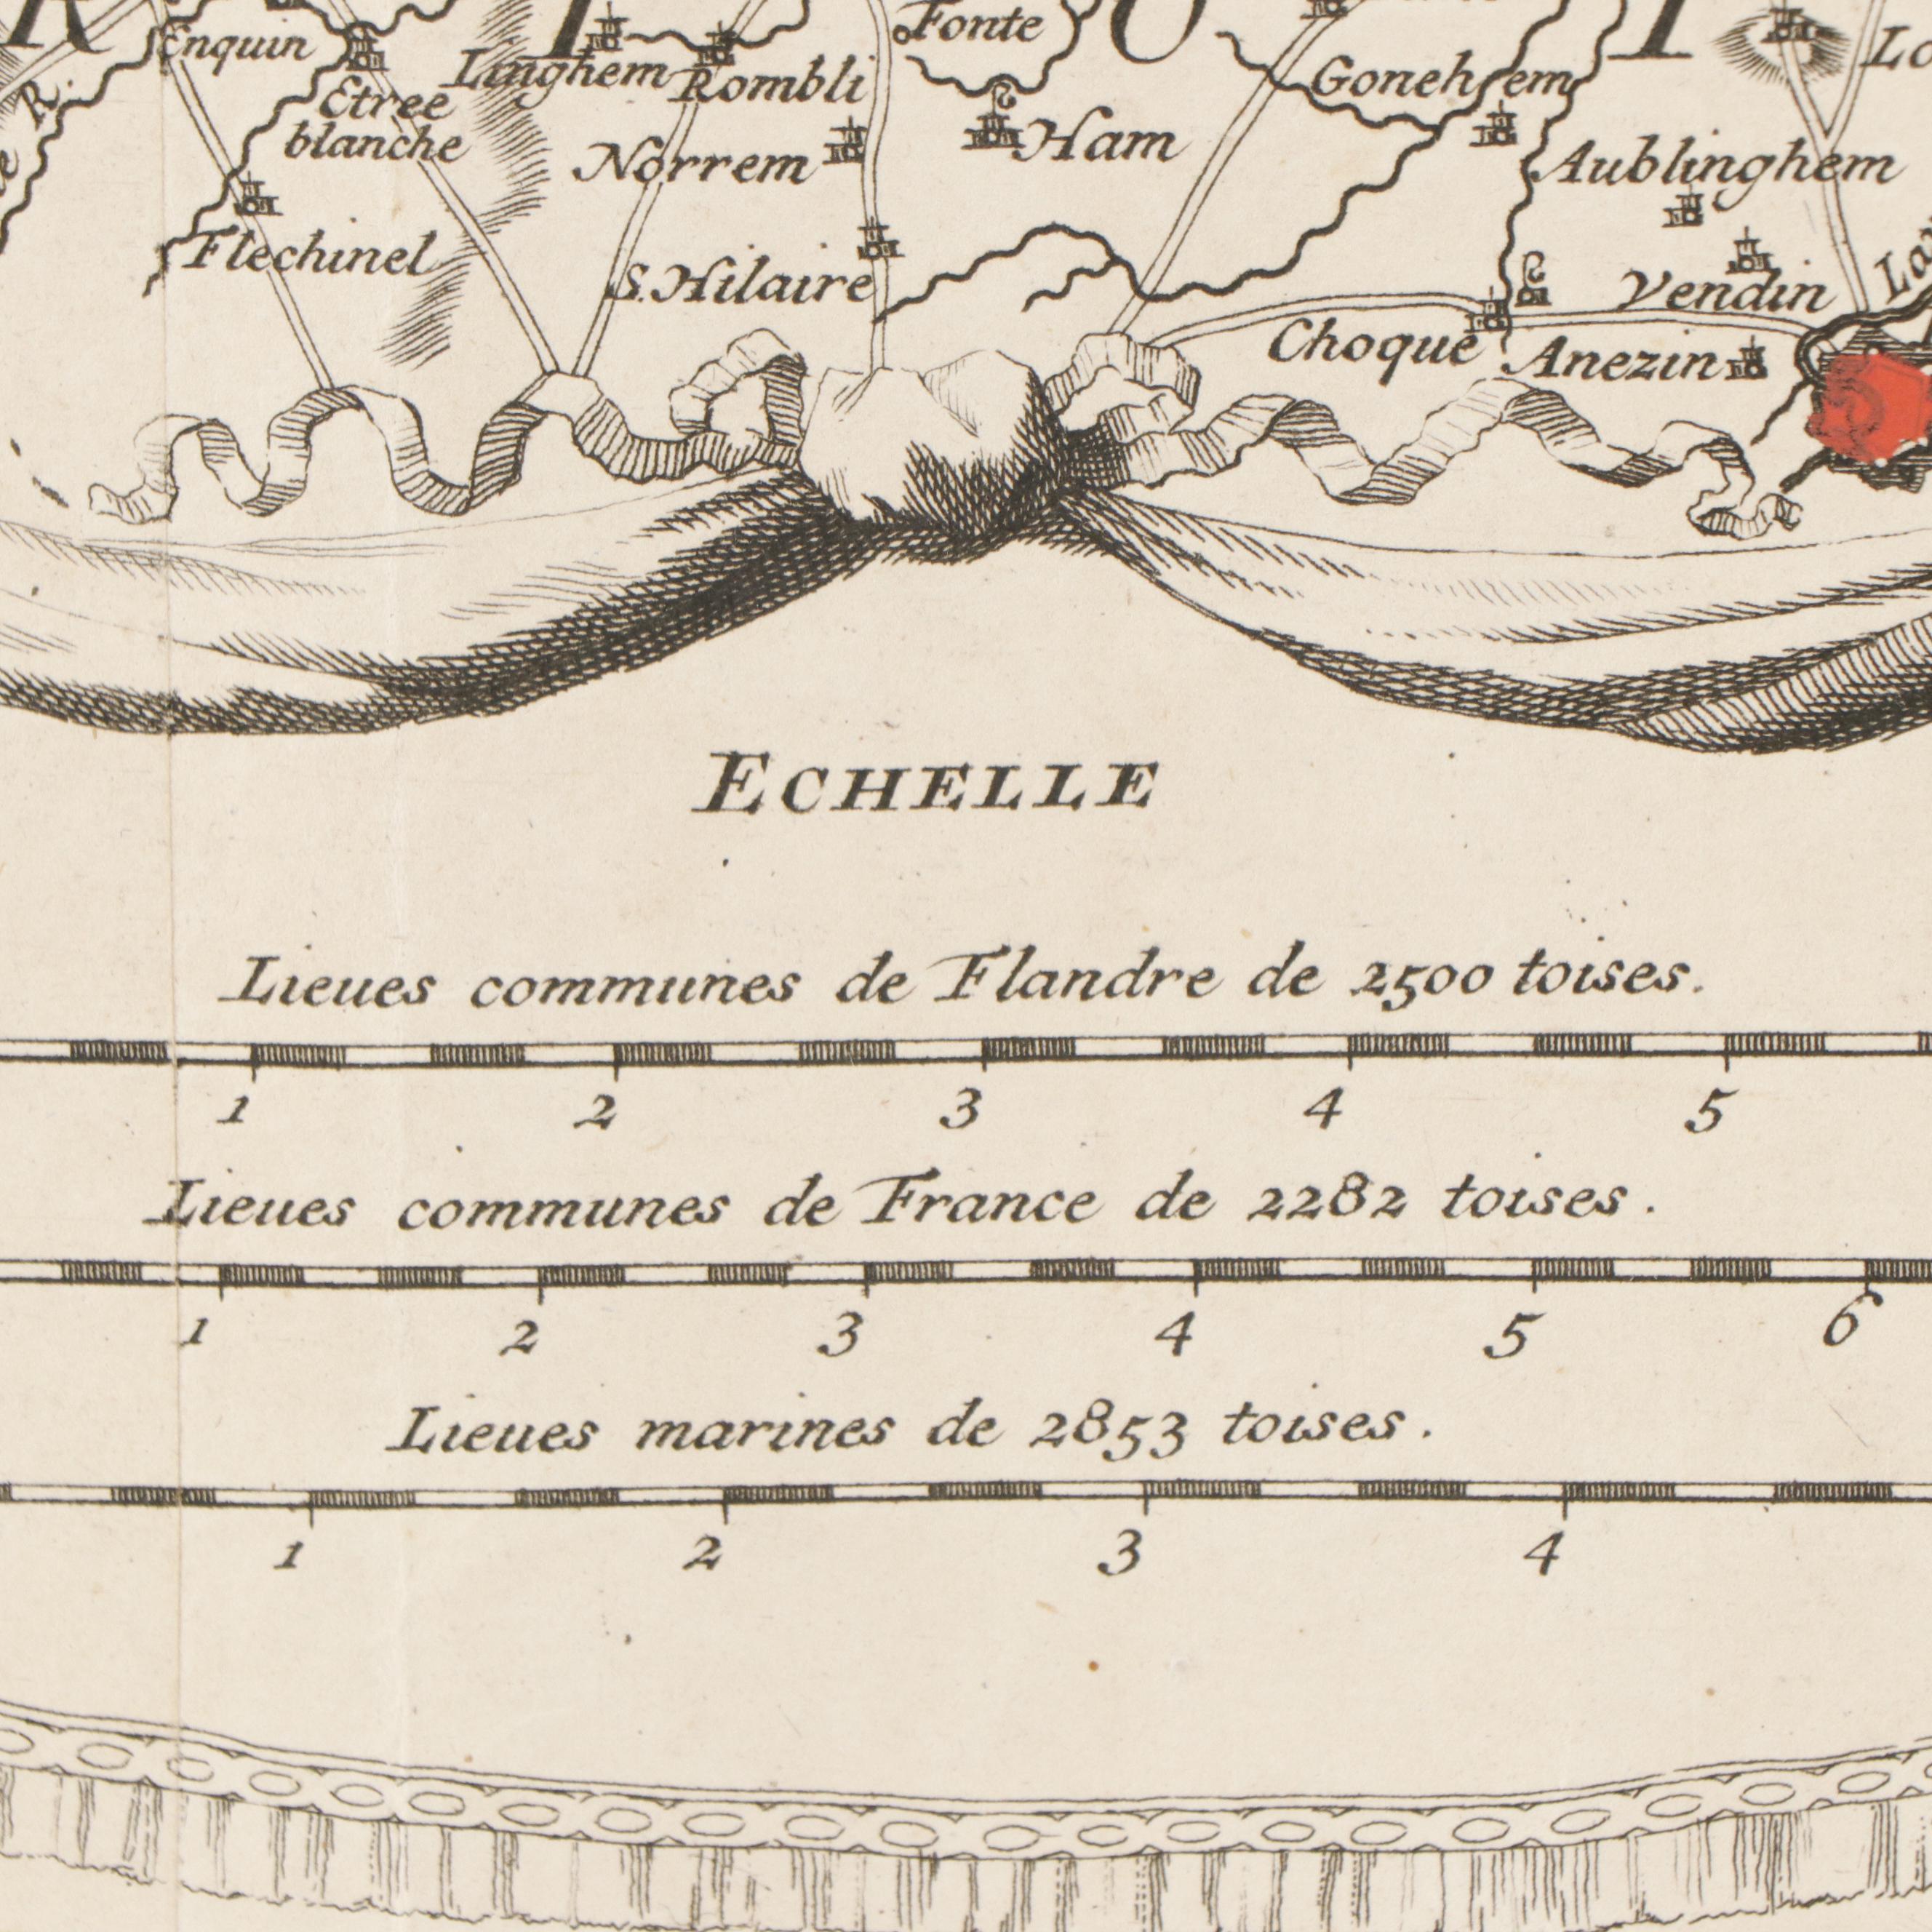 Enquin
Fonte
Linghem
Rombli
Gonehem
R.
Etree
blanche
Norrem
Ham
Aublinghem
Flechinel
S. Hilaire
Vendin
Choque
Anezin
ECHELLE
Lieues communes de Flandre de 2500 toises.
1 2 3 4 5
Lieues communes de France de 2282 toises.
1 2 3 4 5 6
Lieues marines de 2853 toises.
1 2 3 4